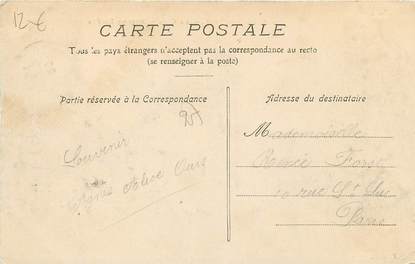 12 €
CARTE POSTALE
Tous les pays étrangers n'acceptent pas la correspondance au recto
(se renseigner à la poste)
Partie réservée à la Correspondance
Adresse du destinataire
Mademoiselle
10 rue St Luc
Paris
Souvenir